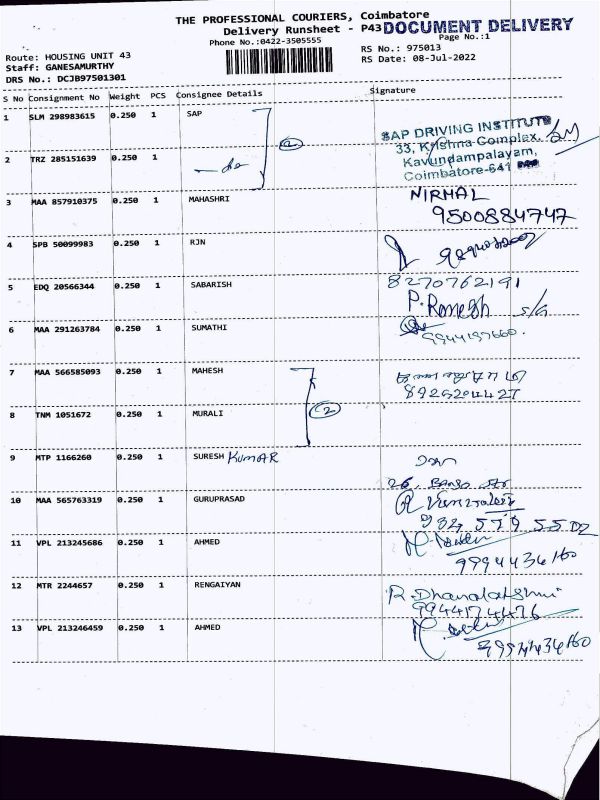 THE PROFESSIONAL COURIERS, Coimbatore
Delivery Runsheet - P43 DOCUMENT DELIVERY
Phone No.:0422-3505555 Page No.:1
Route: HOUSING UNIT 43 RS No.: 975013
Staff: GANESAMURTHY RS Date: 08-Jul-2022
DRS No.: DCJB97501301
S No Consignment No Weight PCS Consignee Details Signature
1 SLM 298983615 0.250 1 SAP
SAP DRIVING INSTITUTE
33, Krishna Complex,
2 TRZ 285151639 0.250 1 Kavundampalayam,
Coimbatore-641
3 MAA 857910375 0.250 1 MAHASHRI NIRMAL
9500884747
4 SPB 50099983 0.250 1 RJN
5 EDQ 20566344 0.250 1 SABARISH 8270762191
P. Ramesh s/a
6 MAA 291263784 0.250 1 SUMATHI
9944197660.
7 MAA 566585093 0.250 1 MAHESH
8925204427
8 TNM 1051672 0.250 1 MURALI
9 MTP 1166260 0.250 1 SURESH KUMAR
10 MAA 565763319 0.250 1 GURUPRASAD
11 VPL 213245686 0.250 1 AHMED
9994436160
12 MTR 2244657 0.250 1 RENGAIYAN R. Dhanalakshmi
9944174476
13 VPL 213246459 0.250 1 AHMED
9994436160